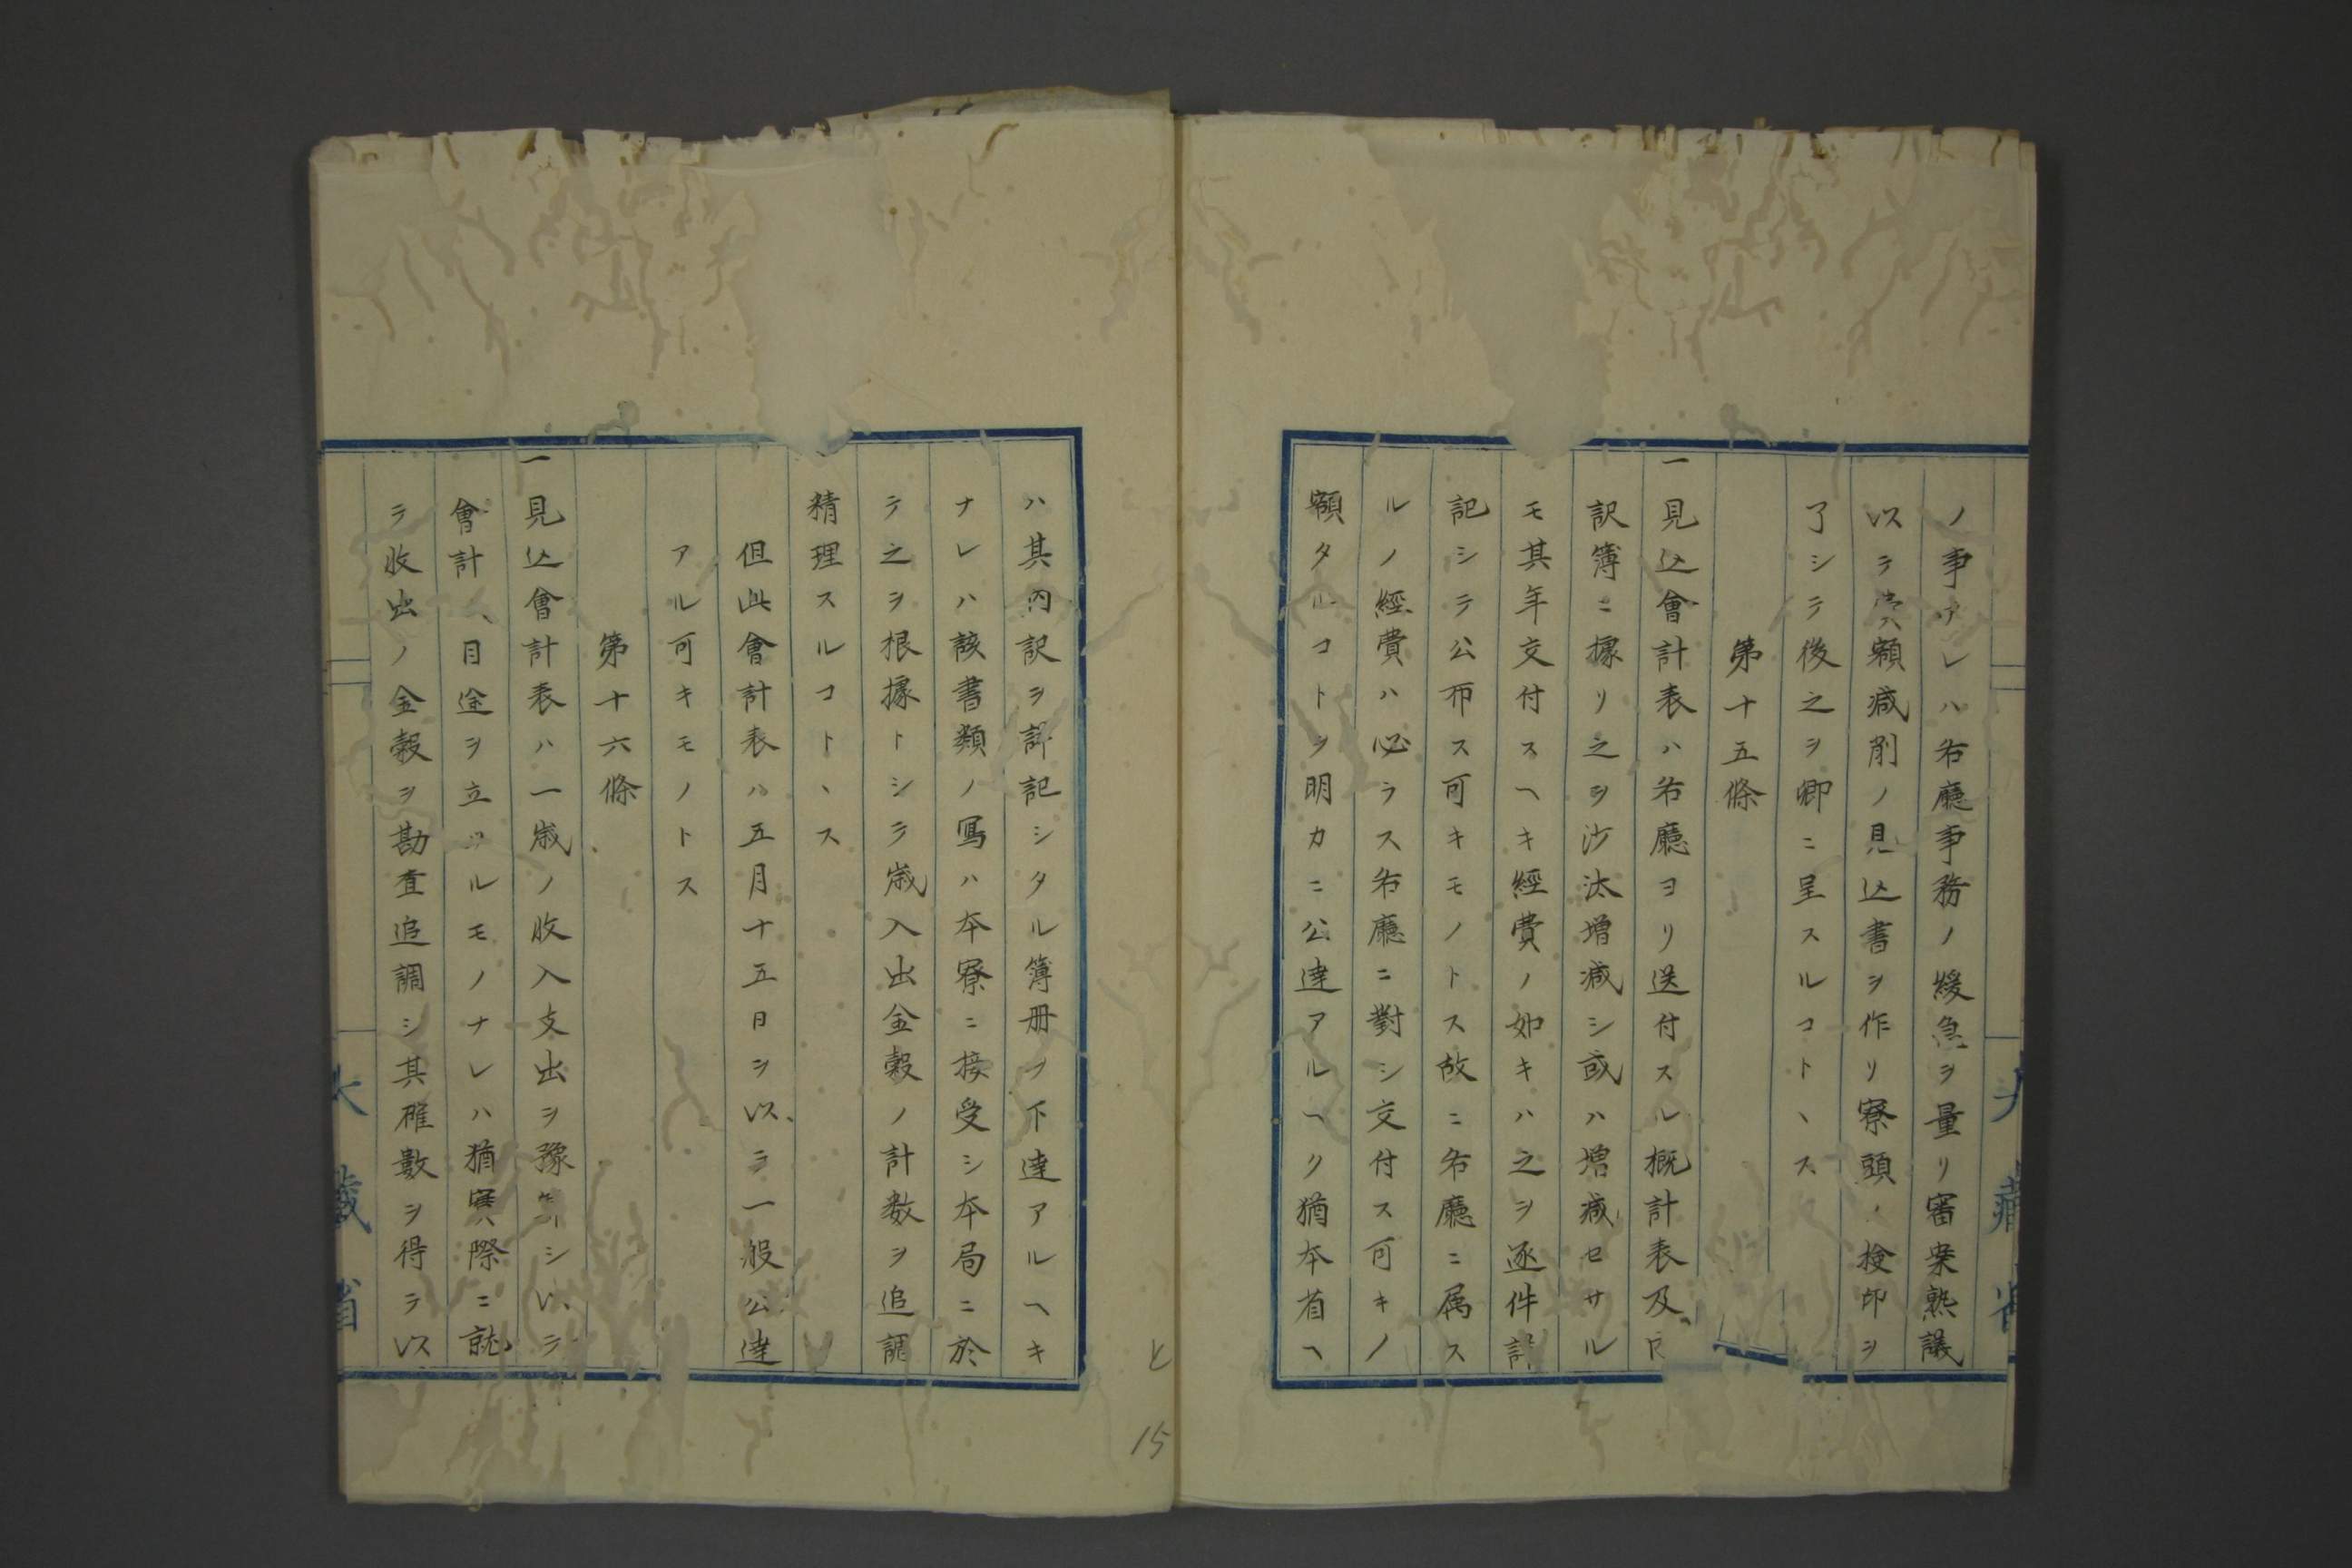 ノ事アレハ各廳事務ノ緩急ヲ量リ審案熟議
以テ定額減削ノ見込書ヲ作リ寮頭ノ検印ヲ
了シテ後之ヲ卿ニ呈スルコトヽス
第十五條
一見込會計表ハ各廳ヨリ送付スル概計表及
訳簿ニ據リ之ヲ沙汰増減シ或ハ増減セサル
モ其年交付スヘキ經費ノ如キハ之ヲ逐件詳
記シテ公布ス可キモノトス故ニ各廳ニ属ス
ルノ經費ハ必ラス各廳ニ對シ交付ス可キノ
額タルコトヲ明カニ公達アルヘク猶本省ヘ
ハ其内訳ヲ詳記シタル簿册ノ下達アルヘキ
ナレハ該書類ノ寫ハ本寮ニ接受シ本局ニ於
テ之ヲ根據トシテ歳入出金穀ノ計数ヲ追調
精理スルコトヽス
但此會計表ハ五月十五日ヲ以テ一般公達
アル可キモノトス
第十六條
一見込會計表ハ一歳ノ收入支出ヲ豫算シ以テ
會計ノ目途ヲ立ツルモノナレハ猶實際ニ就
テ收出ノ金穀ヲ勘査追調シ其確數ヲ得テ以
大藏省
15